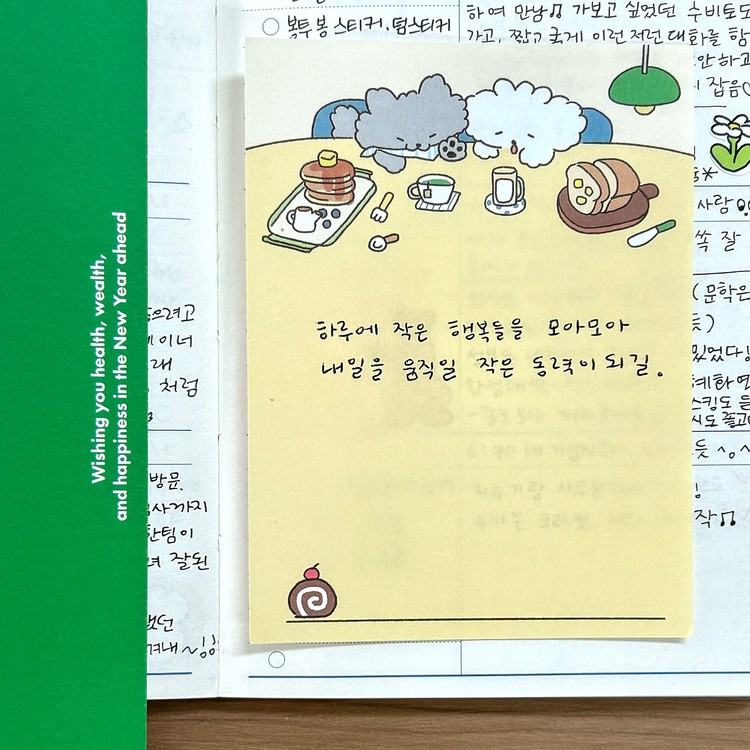 Wishing you health, wealth,
and happiness in the New Year ahead
봉투 봉 스티커, 덤스티커
하여 만남♫ 가보고 싶었던 수비토도
가고, 짧고 굵게 이런 저런 대화를 함
안하고
잡음
사람
쏙 잘
(문학은
있었다!
스킴도 듬
듯 ~.~
작♫
하루에 작은 행복들을 모아모아
내일을 움직일 작은 동력이 되길.
으려고
이너
래
처럼
방문.
사까지
한팀이
잘된
했던